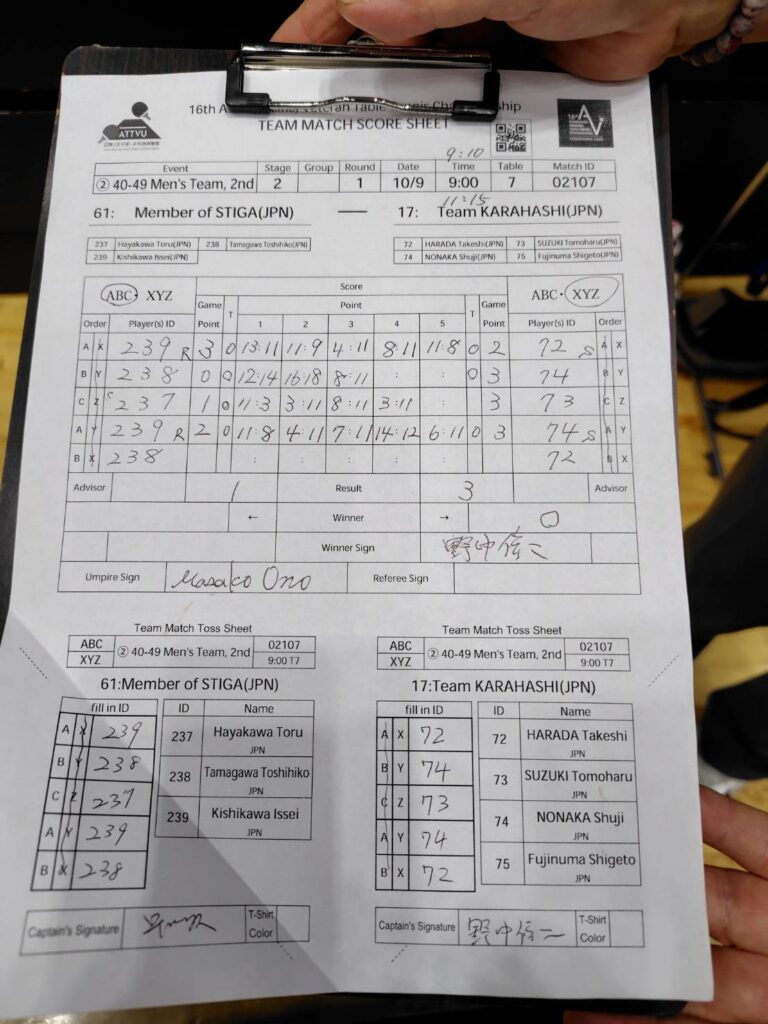 ATTVU
16th A Veteran Table Tennis Championship
TEAM MATCH SCORE SHEET
9:10
Event Stage Group Round Date Time Table Match ID
② 40-49 Men's Team, 2nd 2 1 10/9 9:00 7 02107
11:15
61: Member of STIGA(JPN) — 17: Team KARAHASHI(JPN)
237 Hayakawa Toru(JPN) 238 Tamagawa Toshihiko(JPN) 72 HARADA Takeshi(JPN) 73 SUZUKI Tomoharu(JPN)
239 Kishikawa Issei(JPN) 74 NONAKA Shuji(JPN) 75 Fujinuma Shigeto(JPN)
ABC・XYZ Score ABC・XYZ
Game Point T Point T Game Point
Order Player(s) ID 1 2 3 4 5 Player(s) ID Order
A X 239 R 3 0 13:11 11:9 4:11 8:11 11:8 0 2 72 S A X
B Y 238 0 0 12:14 16:18 8:11 : : 0 3 74 B Y
C Z 237 1 0 11:3 3:11 8:11 3:11 : 3 73 C Z
A Y 239 R 2 0 11:8 4:11 7:11 14:12 6:11 0 3 74 S A Y
B X 238 : : : : : 72 B X
Advisor 1 Result 3 Advisor
← Winner → O
Winner Sign 野中修二
Umpire Sign Masako Ono Referee Sign
Team Match Toss Sheet Team Match Toss Sheet
ABC ② 40-49 Men's Team, 2nd 02107 ABC ② 40-49 Men's Team, 2nd 02107
XYZ 9:00 T7 XYZ 9:00 T7
61:Member of STIGA(JPN) 17:Team KARAHASHI(JPN)
fill in ID ID Name fill in ID ID Name
A X 239 237 Hayakawa Toru JPN A X 72 72 HARADA Takeshi JPN
B Y 238 238 Tamagawa Toshihiko JPN B Y 74 73 SUZUKI Tomoharu JPN
C Z 237 239 Kishikawa Issei JPN C Z 73 74 NONAKA Shuji JPN
A Y 239 A Y 74 75 Fujinuma Shigeto JPN
B X 238 B X 72
Captain's Signature T-Shirt Color Captain's Signature 野中修二 T-Shirt Color